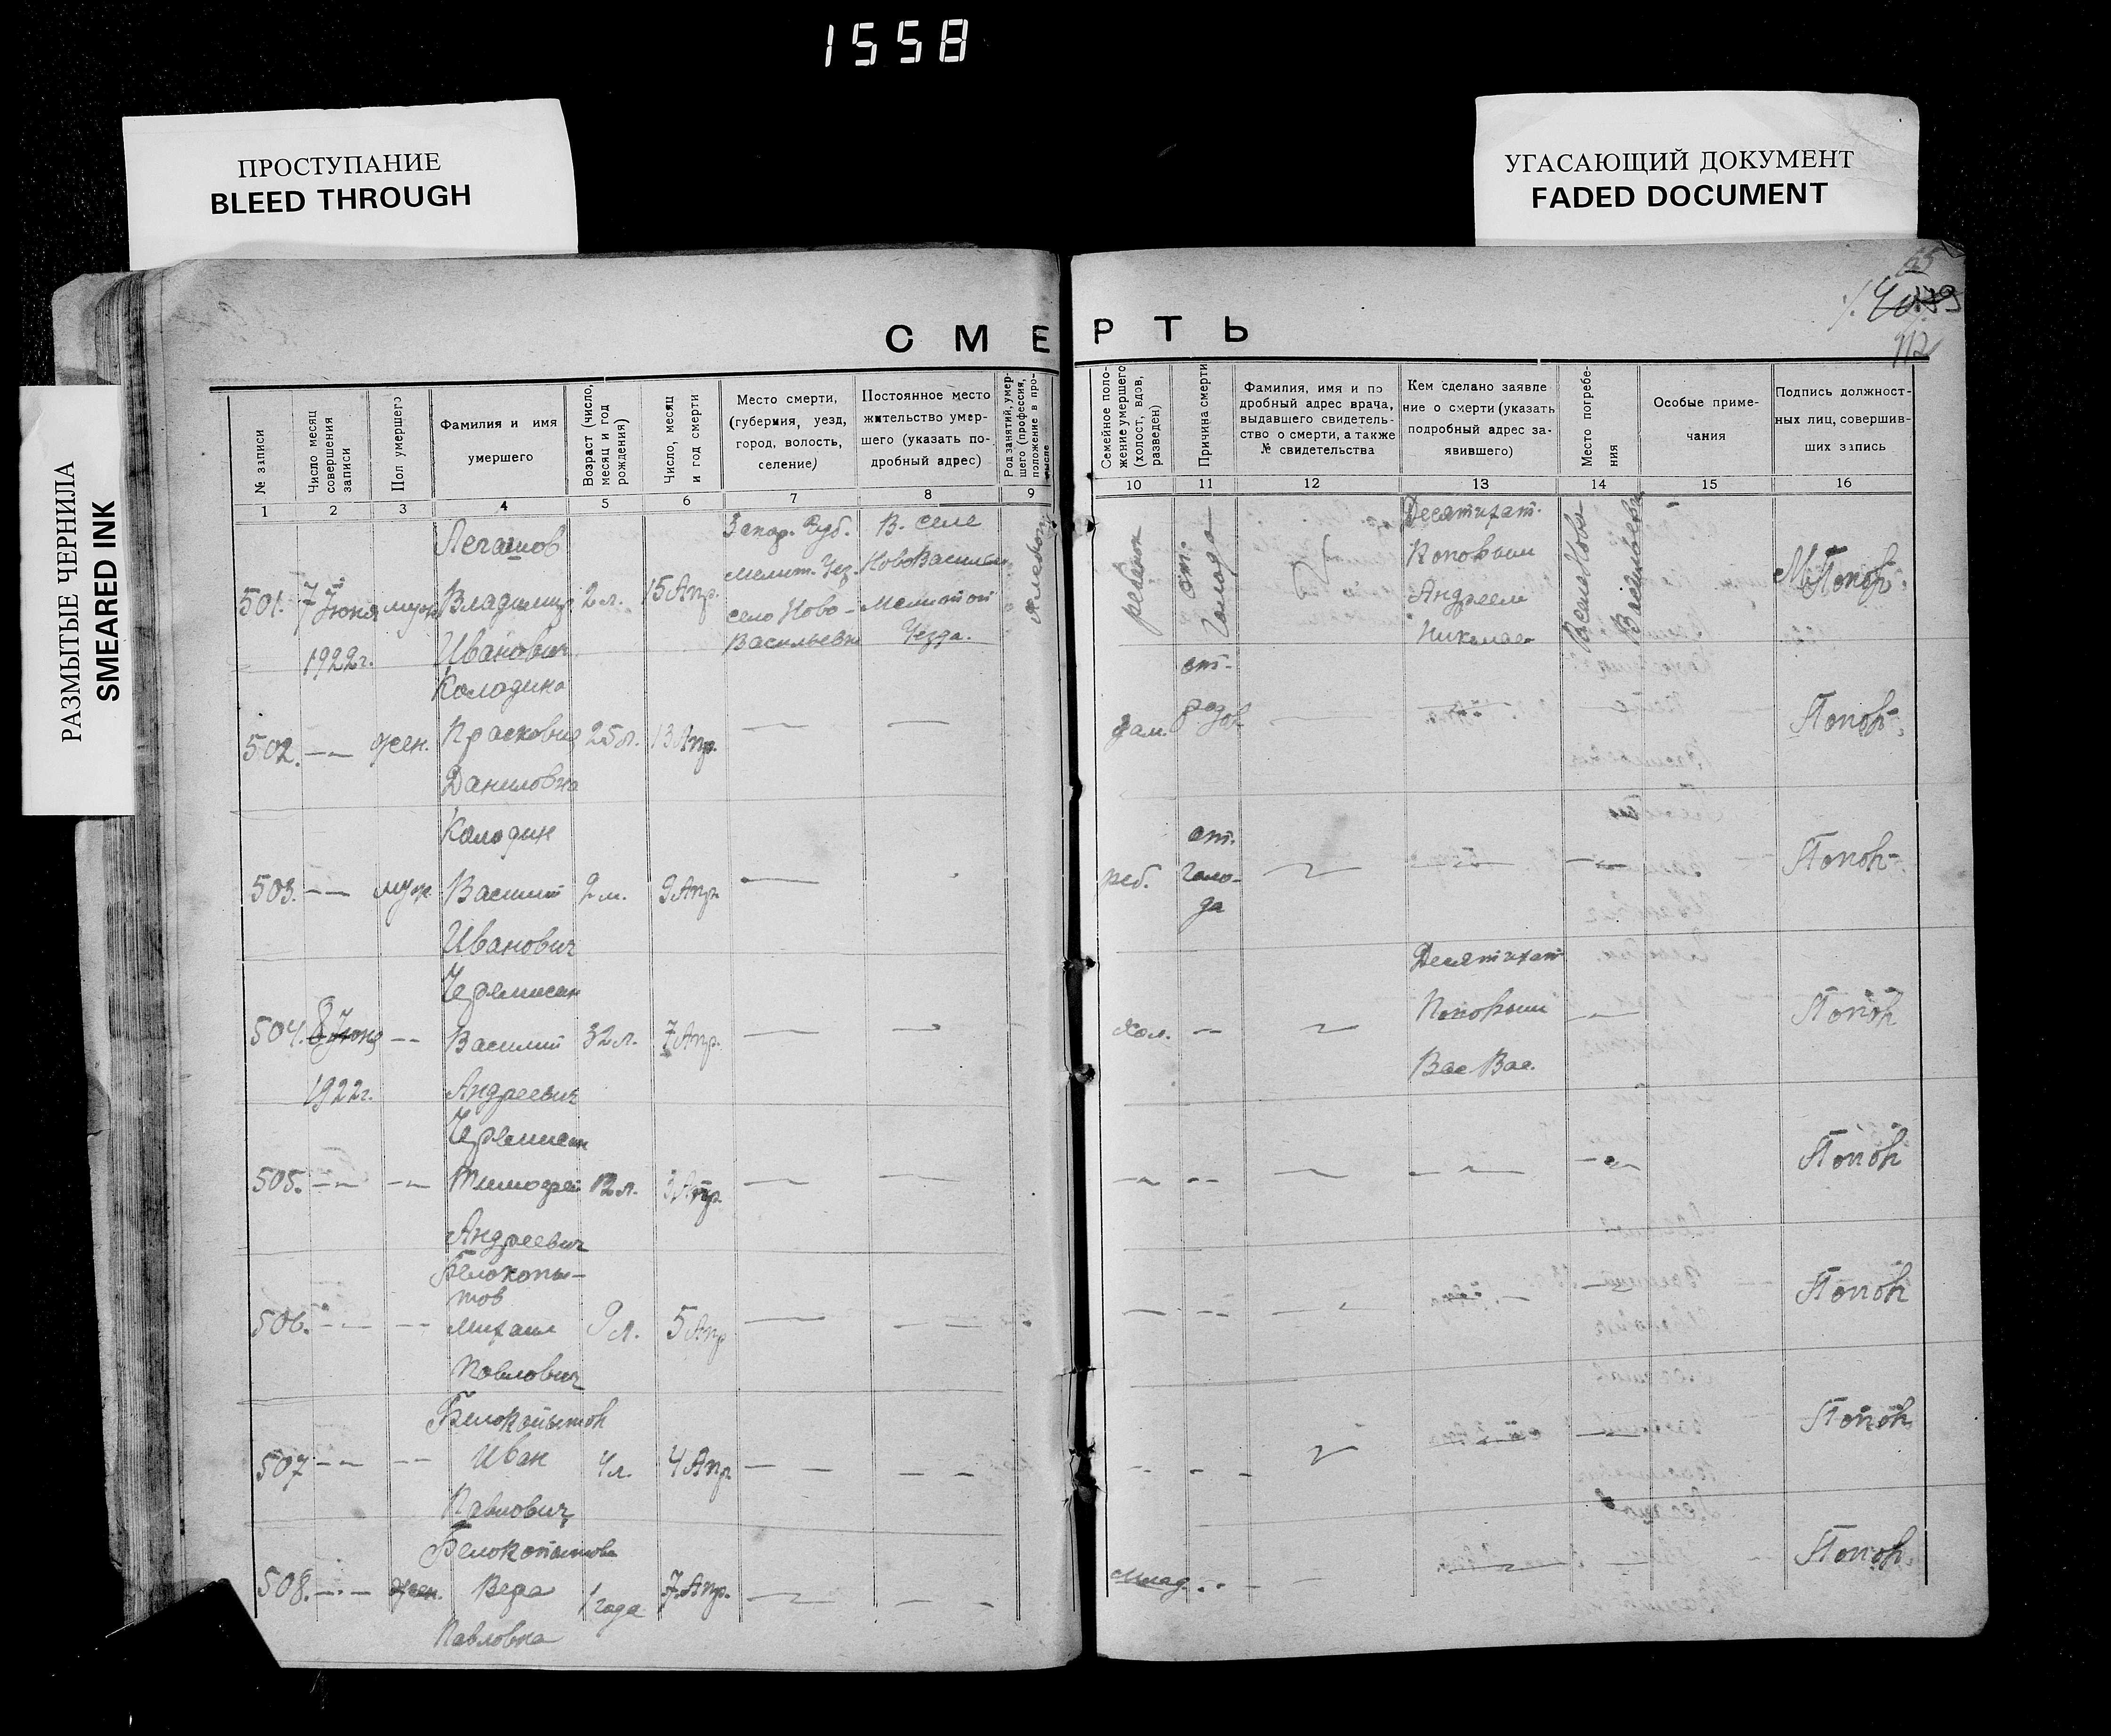 1558
ПРОСТУПАНИЕ
BLEED THROUGH
УГАСАЮЩИЙ ДОКУМЕНТ
FADED DOCUMENT
РАЗМЫТЫЕ ЧЕРНИЛА
SMEARED INK
112
СМЕРТЬ
№ записи
Число месяц совершения записи
Пол умершего
Фамилия и имя
умершего
Возраст (число, месяц и год рождения)
Число, месяц и год смерти
Место смерти,
(губерния, уезд,
город, волость,
селение)
Постоянное место
жительство умер-
шего (указать по-
дробный адрес)
Род занятий, умер-
шего (профессия,
положение в про-
мысле
Семейное поло-
жение умершего
(холост, вдов,
разведен)
Причина смерти
Фамилия, имя и по
дробный адрес врача,
выдавшего свидетель-
ство о смерти, а также
№ свидетельства
Кем сделано заявле
ние о смерти (указать
подробный адрес за-
явившего)
Место погребе-
ния
Особые приме-
чания
Подпись должност-
ных лиц, совершив-
ших запись
1 2 3 4 5 6 7 8 9 10 11 12 13 14 15 16
Запор. Губ. В. селе
Мелит. Уез.
501. 7 Июня муж Владимир 2 л. 15 Апр. село Ново-
Васильевка Уезда.
ребенок
от голода
Десятихат.
Поповым
Андреем
Попов
1922г. Иванович
Колодина
502. — — жен. Прасковья 25 л. 13 Апр. — —
Даниловна
зам. от родов — — Попов
Колодин
503. — — муж. Василий 2 м. 9 Апр. —
Иванович
реб. от голо-
да — — — Попов
504. 8 Июня — — Василий 32 л. 7 Апр. — —
1922г. Андреевич
хол. — — —
Десятихат
Поповым
Вас Вас.
— Попов
505. — — — — Тимофей 12 л. 3 Апр. — —
Андреевич
— — — — — — Попов
Белокопы-
тов
506. — — — — Михаил 9 л. 5 Апр — — —
Павлович
— — — — — — Попов
Белокопытов
507 — — — — Иван 4 л. 4 Апр — — — —
Павлович
— — — — — — Попов
Белокопытова
508. — — жен. Вера 1 года 7 Апр. — — —
Павловна
млад. — — — — — Попов